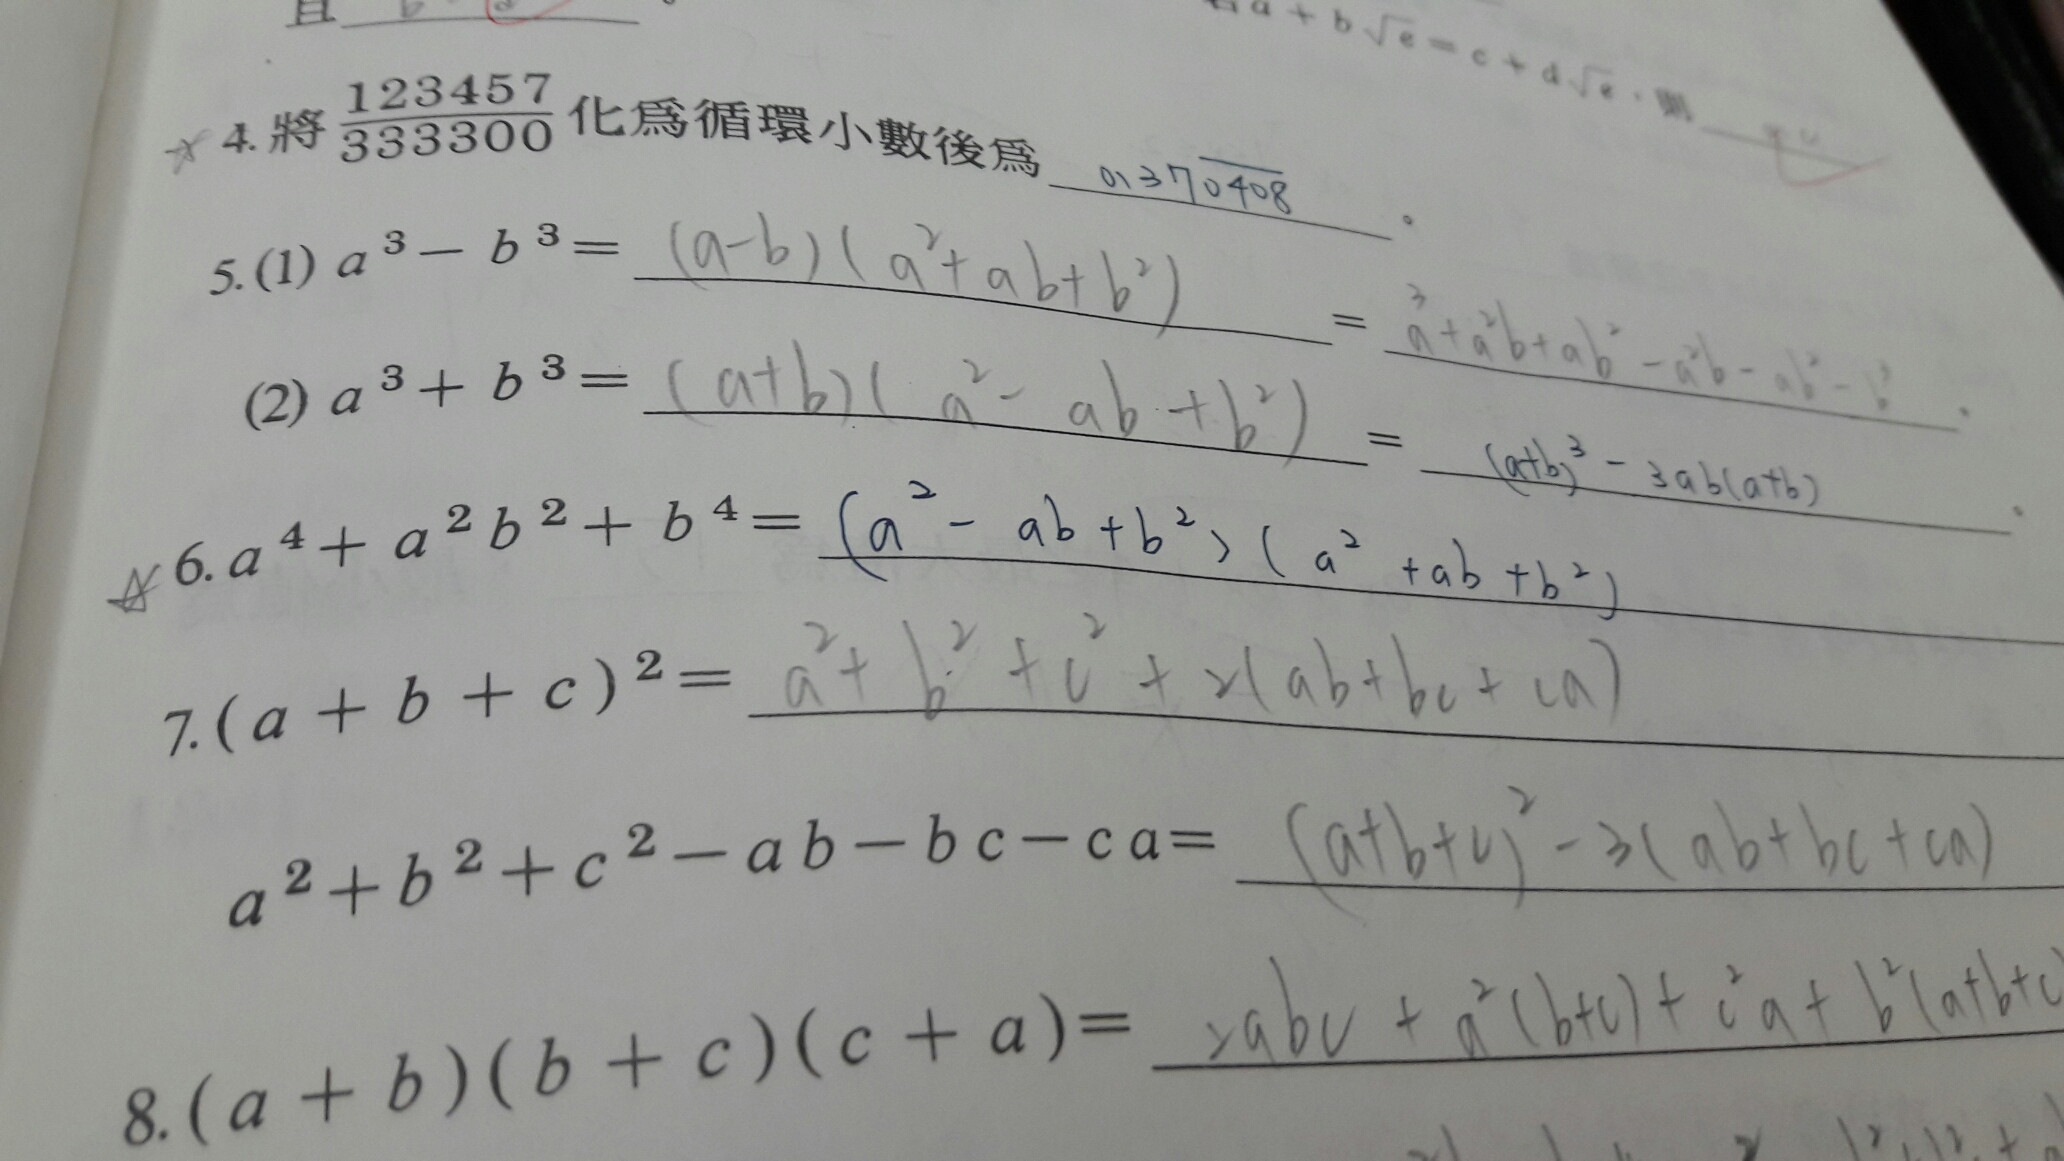 且 b
a + b√e = c + d√e，則
4. 將 123457/333300 化為循環小數後為 0.370408。
5. (1) a³ − b³ = (a-b)(a²+ab+b²) = a³+a²b+ab²-a²b-ab²-b³。
(2) a³ + b³ = (a+b)(a²-ab+b²) = (a+b)³-3ab(a+b)。
6. a⁴ + a²b² + b⁴ = (a²-ab+b²)(a²+ab+b²)
7. (a + b + c)² = a²+b²+c²+2(ab+bc+ca)
a² + b² + c² − ab − bc − ca = (a+b+c)²-3(ab+bc+ca)
8. (a + b)(b + c)(c + a) = 2abc+a²(b+c)+c²a+b²(a+b+c